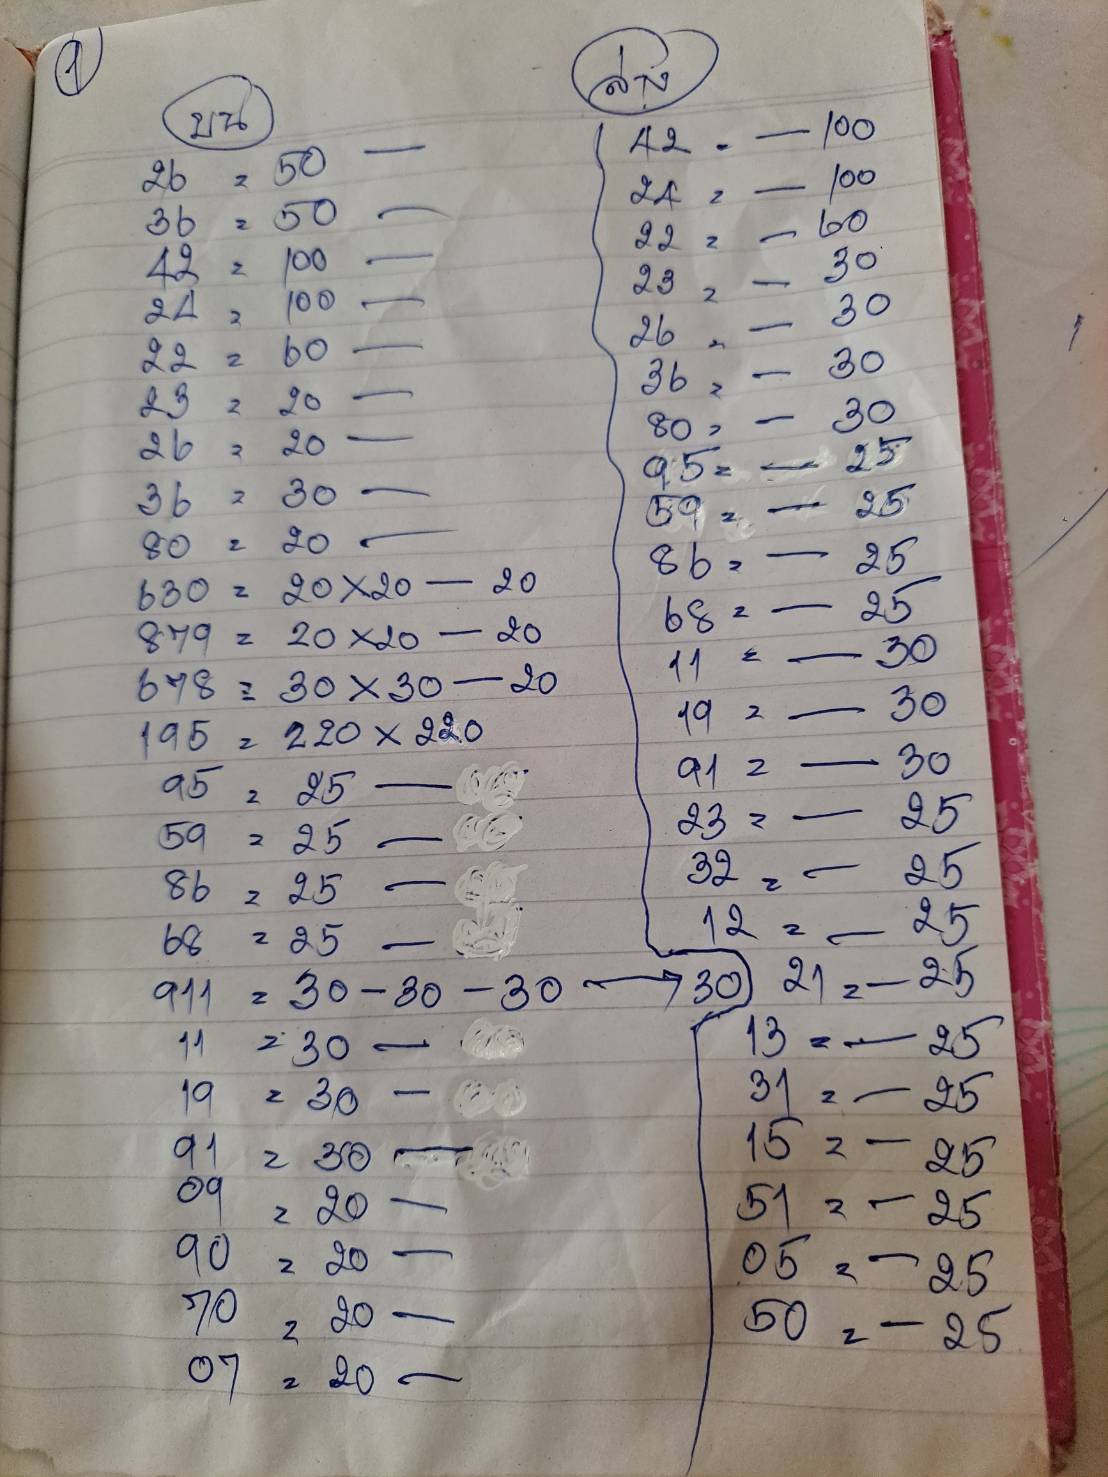 1
บน
26 = 50 —
36 = 50 —
42 = 100 —
24 = 100 —
22 = 60 —
23 = 20 —
26 = 20 —
36 = 30 —
80 = 20 —
630 = 20×20 — 20
879 = 20×20 — 20
678 = 30×30 — 20
195 = 220×220
95 = 25 —
59 = 25 —
86 = 25 —
68 = 25 —
911 = 30 - 30 - 30 → 30
11 = 30 —
19 = 30 —
91 = 30 —
09 = 20 —
90 = 20 —
70 = 20 —
07 = 20 —
ล่าง
42 - — 100
24 = — 100
22 = — 60
23 = — 30
26 = — 30
36 = — 30
80 = — 30
95 = — 25
59 = — 25
86 = — 25
68 = — 25
11 = — 30
19 = — 30
91 = — 30
23 = — 25
32 = — 25
12 = — 25
21 = — 25
13 = — 25
31 = — 25
15 = — 25
51 = — 25
05 = — 25
50 = — 25